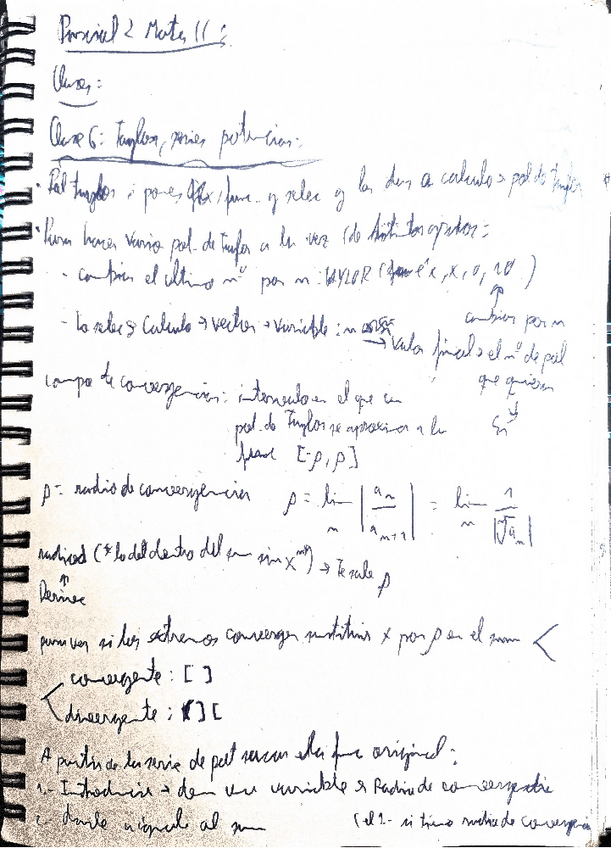 Parcial 2 Mates II:
Clases:
Clase 6: Taylor, series potencias:
· Pol Taylor: pones func. y selec y le das a calculo > pol. de Taylor
· Para hacer varios pol. de Taylor a la vez (de distintos :
- cambias el último nº por n: TAYLOR ( e^x, x, 0, 10)
cambias por n
- Lo selec > Calculo → vector → variable: n
→ valor final > el nº de pol
que quieras
campo de convergencia: intervalo en el que un
pol. de Taylor se aproxima a la
[-ρ, ρ]
ρ = radio de convergencia ρ = lim n |a_n / a_{n+1}| = lim n 1 / |ⁿ√a_n|
(*lo del dentro del sum sin x^n) → Te sale ρ
↑
Derive
para ver si los extremos convergen sustituir x por ρ en el sum <
convergente: [ ]
divergente: ] [
A partir de la serie de pot sacar la func original:
1.- Introducir → den variable > Radio de convergencia
al sum (el 1.- si tiene radio de convergencia